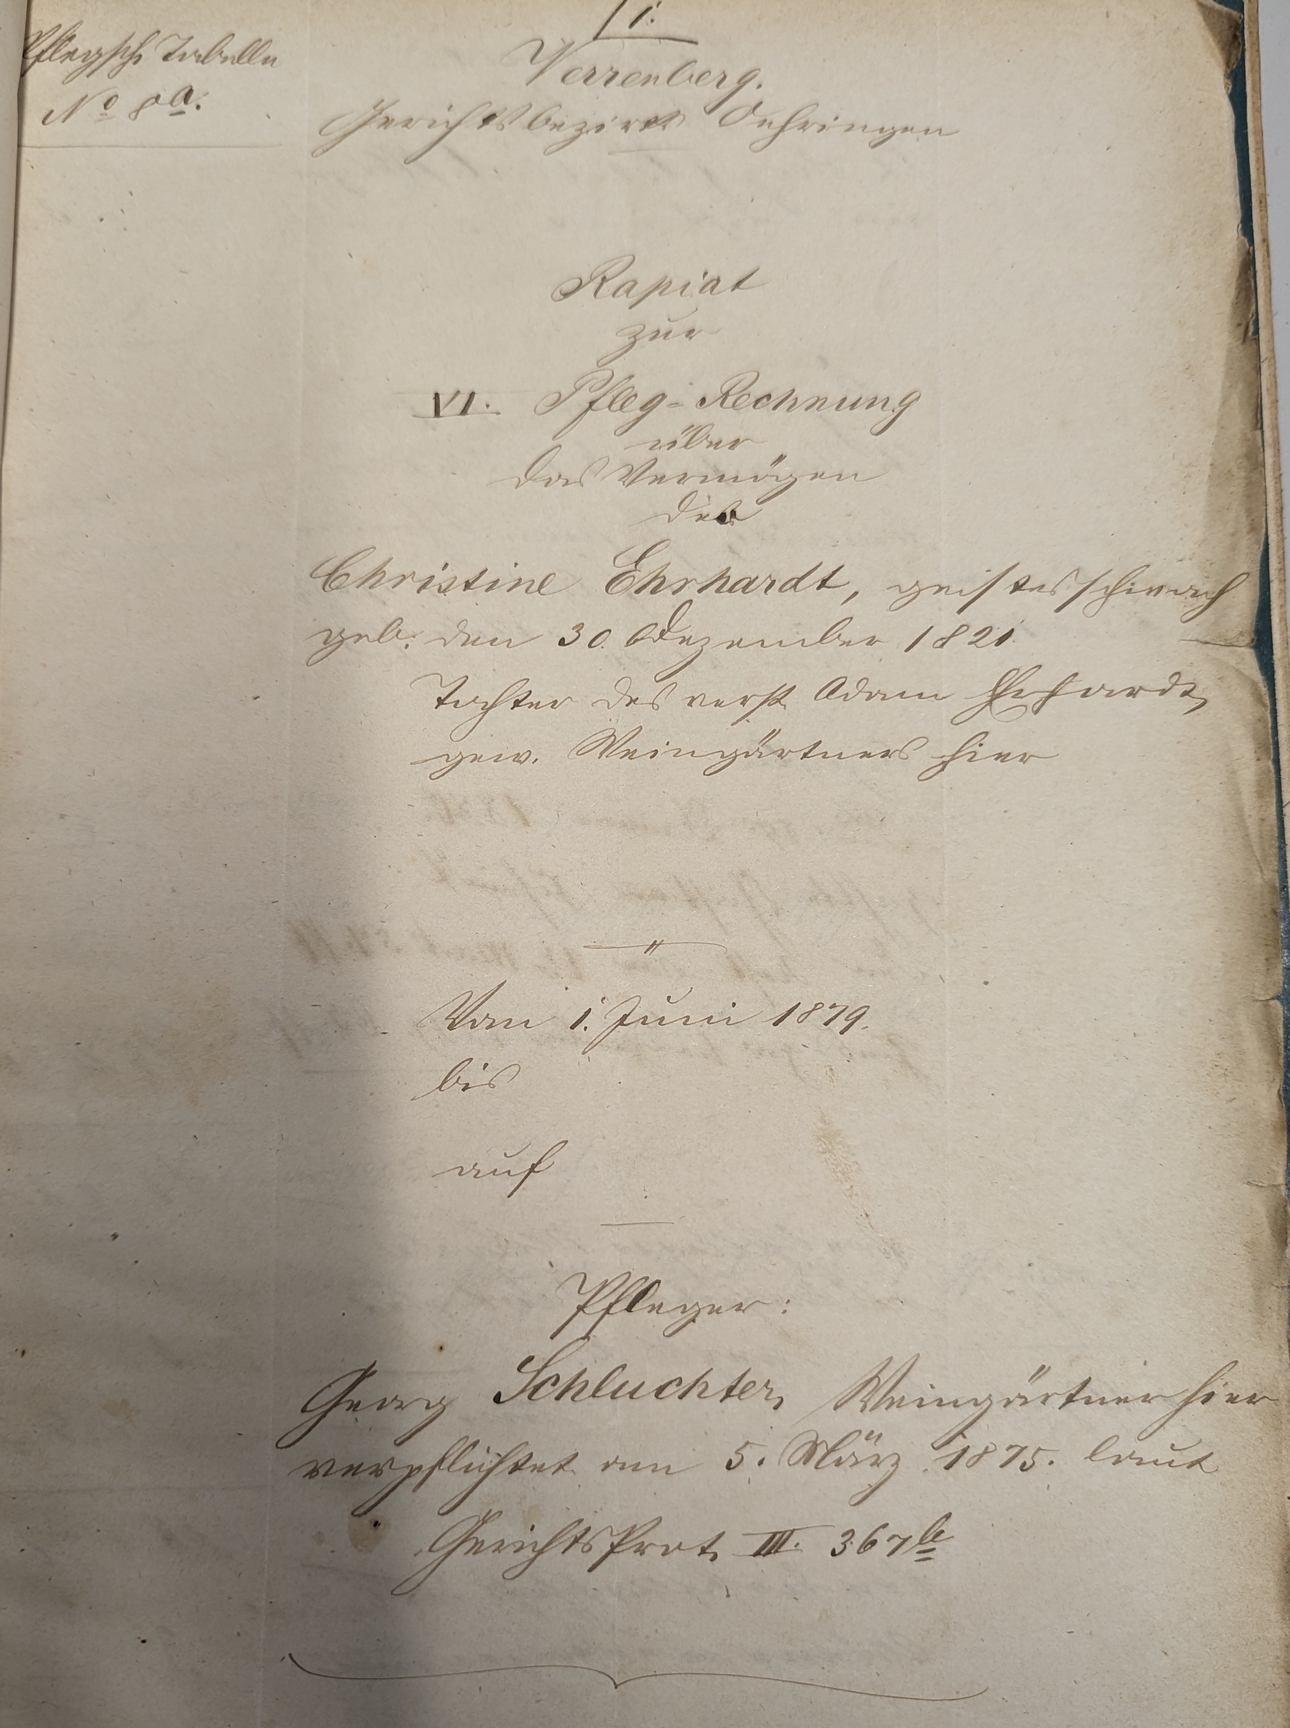 Pflegsch. Tabelle
No 8a.
1.
Verrenberg.
Gerichtsbezirk Oehringen
Rapiat
zur
VI. Pfleg-Rechnung
über
das Vermögen
der
Christine Ehrhardt, geistesschwach
geb. den 30. Dezember 1821.
Tochter des verst. Adam Ehrhardt,
gew. Weingärtners hier
Vom 1. Juni 1879.
bis
auf
Pfleger:
Georg Schluchter, Weingärtner hier
verpflichtet am 5. März 1875. laut
GerichtsProt. III. 367b